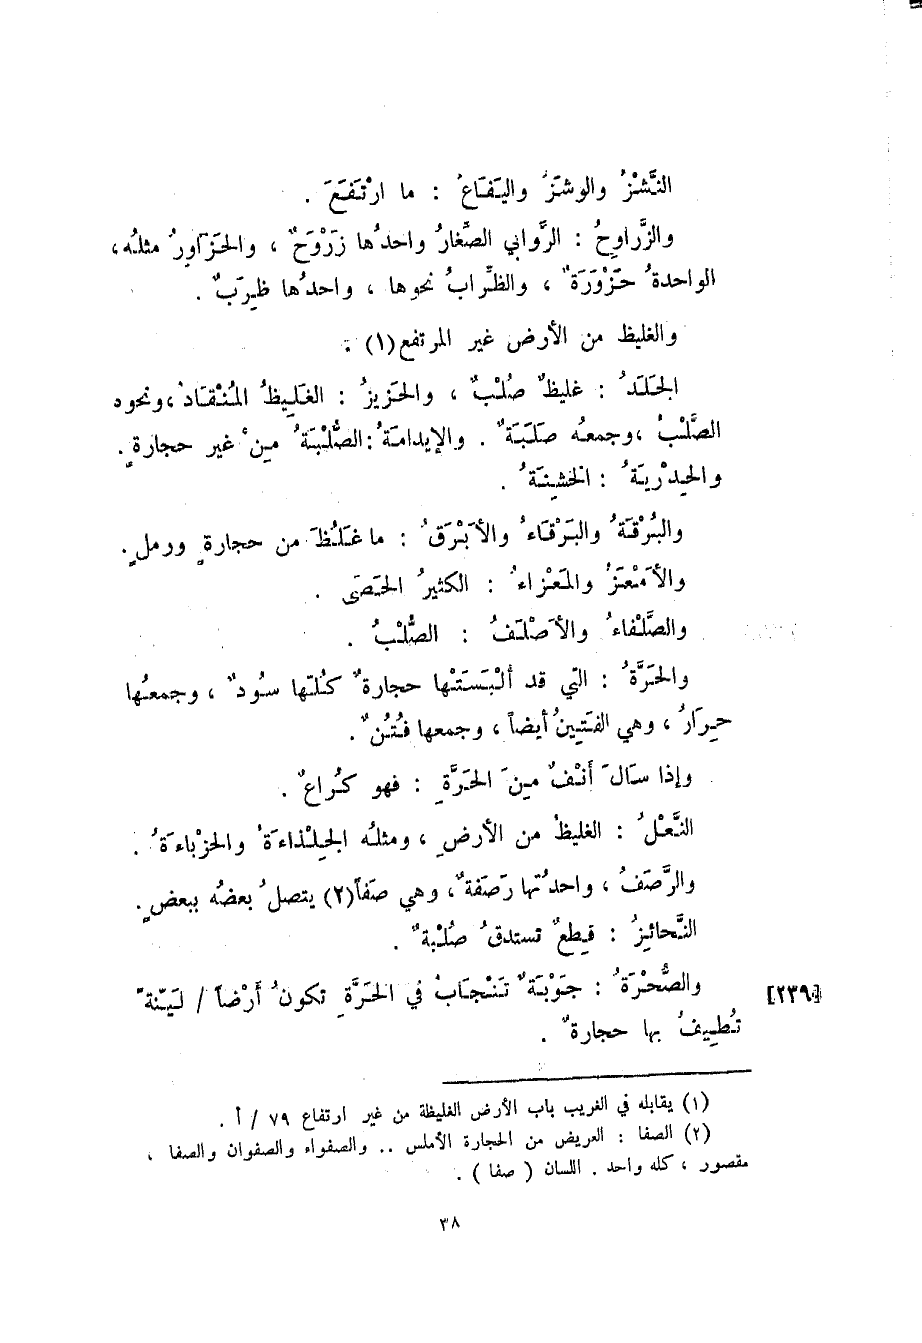 النَّشْزُ والوشَزُ واليَفَاعُ : ما ارْتَفَعَ .
والزَّراوِحُ : الرَّوابي الصِّغارُ واحدُها زَرْوَحٌ ، والحَزَاوِرُ مثلُه،
الواحدةُ حَزْوَرَةٌ ، والظِّرابُ نحوها ، واحدُها ظَرِبٌ .
والغليظ من الأرض غير المرتفع(١) :
الجَلَدُ : غليظٌ صُلْبٌ ، والحَزيزُ : الغَلِيظُ المُنْقَادُ ،ونحوه
الصُّلْبُ ،وجمعُه صَلَبَةٌ . والإيدامَةُ :الصُّلْبَةُ مِنْ غير حجارةٍ .
والحِدْرِيَةُ : الخَشِنَةُ .
والبُرْقَةُ والبَرْقَاءُ والأَبْرَقُ : ما غَلُظَ من حجارةٍ ورملٍ .
والأَمْعَزُ والمَعْزاءُ : الكثيرُ الحَصَى .
والصَّلْفاءُ والأَصْلَفُ : الصُّلْبُ .
والحَرَّةُ : التي قد أَلْبَسَتْها حجارةٌ كُلُّها سُودٌ ، وجمعُها
حِرَارٌ ، وهي الفَتِينُ أيضاً ، وجمعها فُتُنٌ .
وإذا سَالَ أَنْفٌ مِنَ الحَرَّةِ : فهو كُراعٌ .
النَّعْلُ : الغليظُ من الأرضِ ، ومثلُه الجِلْذاءَةُ والحِزْباءَةُ .
والرَّصَفُ ، واحدُتها رَصَفةٌ ، وهي صَفاً(٢) يتصلُ بعضُه ببعضٍ .
النَّحائِزُ : قِطَعٌ تستدقُ صُلْبةٌ .
والصُّحْرَةُ : جَوْبَةٌ تَنْجَابُ في الحَرَّةِ تكونُ أَرْضاً / لَيِّنةً [٢٣٩]
تُطِيفُ بها حجارةٌ .
(١) يقابله في الغريب باب الأرض الغليظة من غير ارتفاع ٧٩ / أ .
(٢) الصفا : العريض من الحجارة الأملس .. والصفواء والصفوان والصفا ،
مقصور ، كله واحد . اللسان ( صفا ) .
٣٨